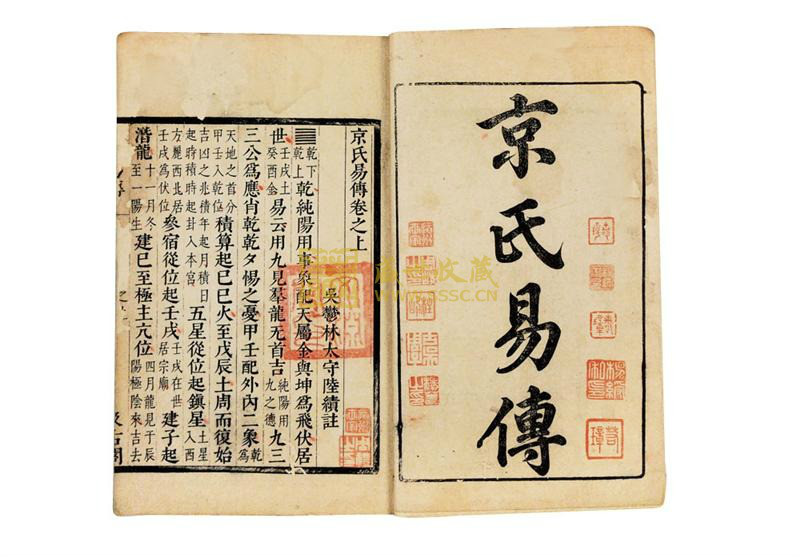 京氏易傳
京氏易傳卷之上
吳鬱林太守陸績註
☰乾下乾上乾純陽用事象配天屬金與坤爲飛伏居
世壬戌土癸酉金易云用九見羣龍无首吉純陽用九之德九三
三公爲應肖乾乾夕惕之憂甲壬配外內二象乾爲
天地之首分甲壬入乾位積算起巳巳火至戊辰土周而復始
吉凶之兆積年起月積日起時積時起卦入本宮五星從位起鎮星土星入西
方麗西北居壬戌爲伏位參宿從位起壬戌壬戌在世居宗廟建子起
潛龍十一月冬至一陽生建巳至極主亢位四月龍見于辰陽極陰來吉去
汲古閣
收藏
SSSC.CN